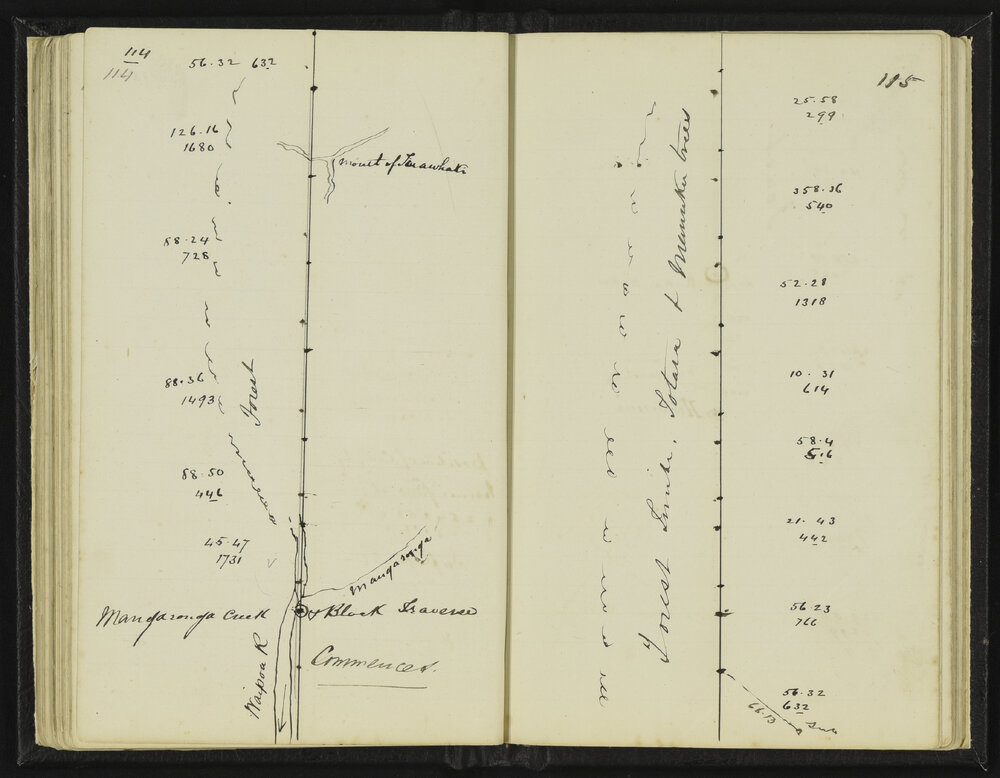 114
114
56.32 632
126.16
1680
Mount of Tauawhati
58.24
728
88.36
1493
Forest
58.50
446
45.47
1731
Mangaronga
Mangaronga Creek & Block Traverse
Commences.
Waipoa R
115
25.58
299
358.36
540
52.28
1318
10.31
614
58.4
56
21.43
442
56.23
766
56.32
632
66.13
Forest Totara & Manuka trees